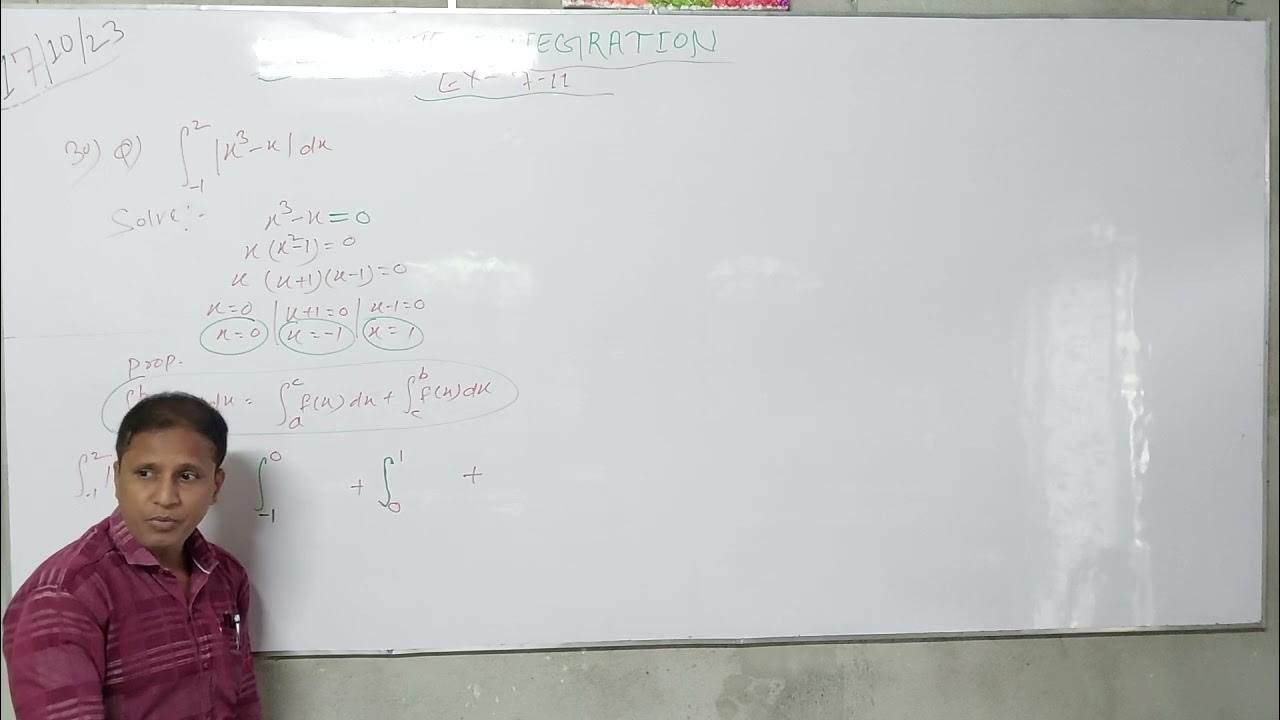 17/10/23
EGRATION
Ex - 7-11
30) Q) ∫₋₁² |x³-x| dx
Solve:- x³-x=0
x(x²-1)=0
x (x+1)(x-1)=0
x=0 | x+1=0 | x-1=0
x=0 | x=-1 | x=1
prop.
dx = ∫ₐᶜ f(x) dx + ∫ᶜᵇ f(x) dx
∫₋₁² | ∫₋₁⁰ + ∫₀¹ +